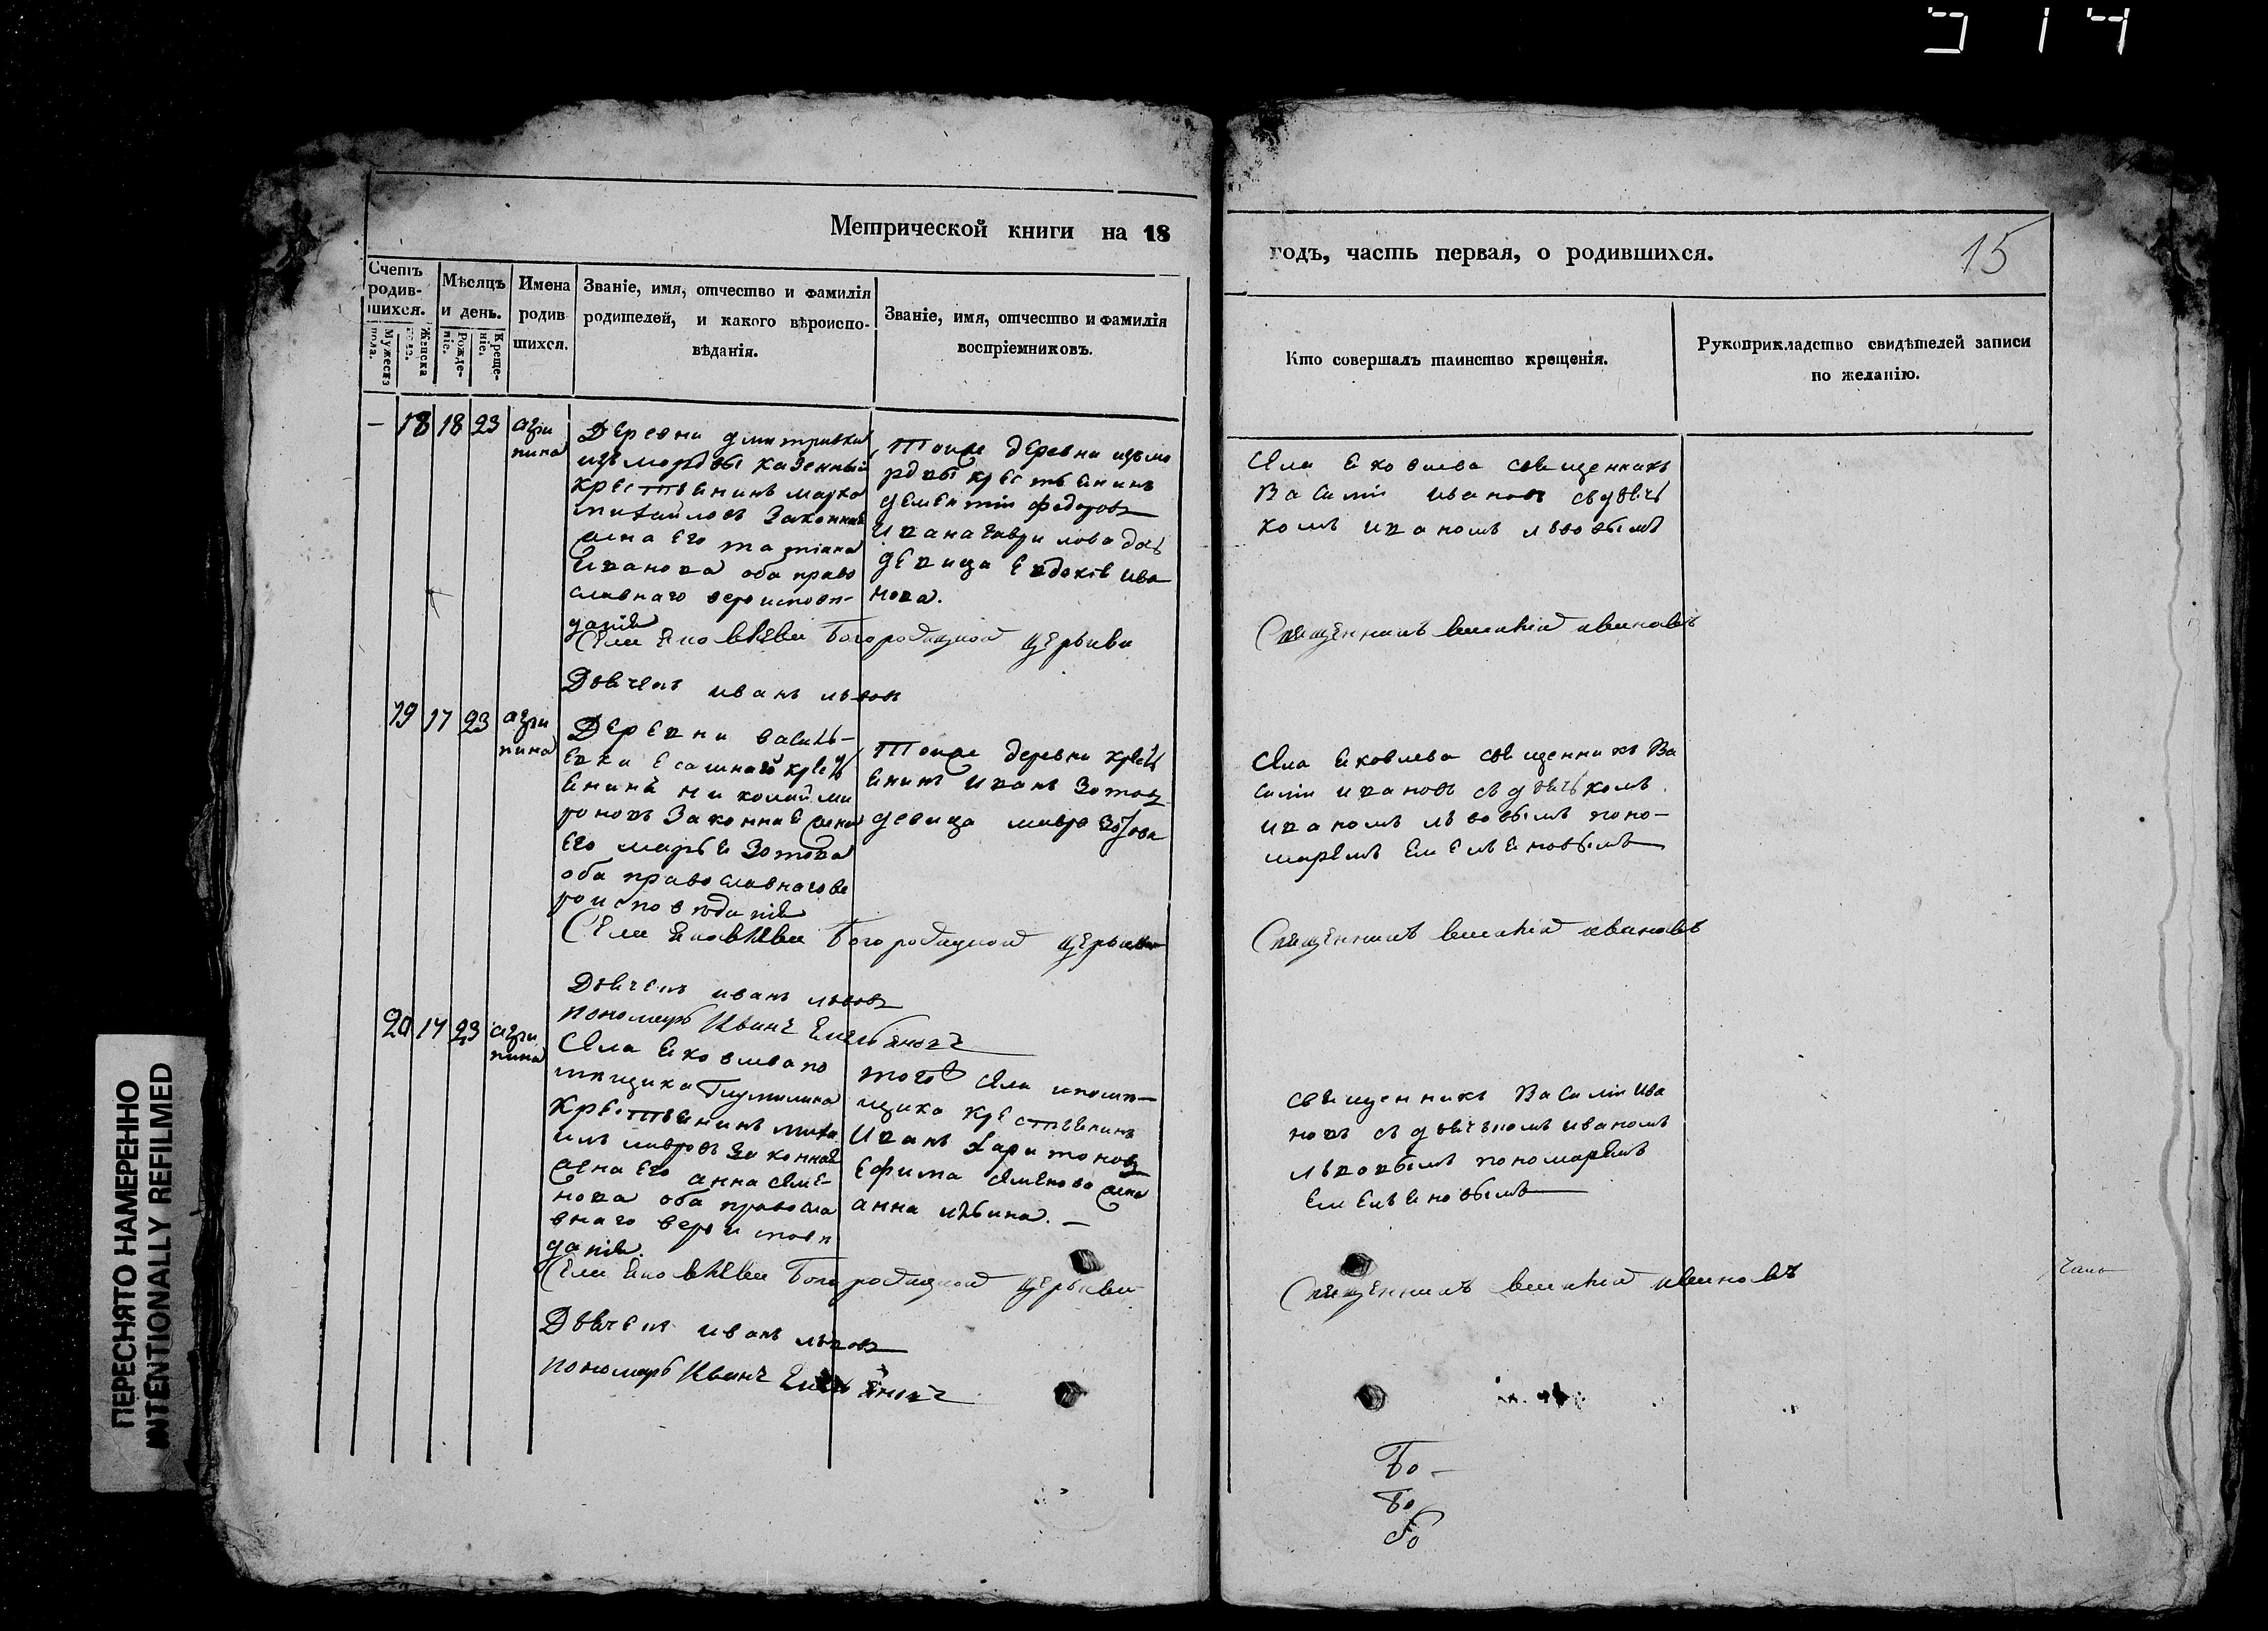 314
Метрической книги на 18
годъ, часть первая, о родившихся.
15
Счетъ родив-шихся.
Мужеска пола.
Женска пола.
Мѣсяцъ и день.
Рожде-ніе.
Креще-ніе.
Имена родив шихся.
Званіе, имя, отчество и фамилія
родителей, и какого вѣроиспо-
вѣданія.
Званіе, имя, отчество и фамилія
воспріемниковъ.
Кто совершалъ таинство крещенія.
Рукоприкладство свидѣтелей записи
по желанію.
— 18 18 23 агри
пина
Деревни дмитривки
изъ мордвы казенный
крестьянинъ марко
михайловъ законная
жена его татиана
иванова оба право
славнаго вероиспови-
данія
тойже деревни изъ мо
рдвы крестьянинъ
дементий федоровъ
ивана гаврилова дочь
девица евдокия ива
нова.
Села яковлева священникъ
Василий ивановъ съ дьяч
комъ иваномъ львовымъ
Села яковлева Богородицкой церькви
Священникъ василий ивановъ
Дьячекъ иванъ львовъ
19 17 23 агри
пина
Деревни василь-
евки крест
янинъ николай ми
роновъ законная жена
его марья зотова
оба православнаго ве
роисповѣданія
тойже деревни крест
янинъ иванъ зотовъ
девица мавра зотова
Села яковлева священникъ Ва
силий ивановъ съ дьячькомъ
иваномъ львовымъ поно-
маремъ емельяновымъ
Села яковлева Богородицкой церькви
Священникъ василий ивановъ
Дьячекъ иванъ львовъ
пономарь Иванъ Емельяновъ
20 17 23 агри
пина
Села яковлева по
мищика
крестьянинъ миха
илъ лавровъ законная
жена его анна семе-
нова оба правосла
внаго вероисповѣ
данія.
тогоже села и помѣ-
щика крестьянинъ
иванъ харитоновъ
ефима семенова жена
анна ильина. —
священникъ Василий ива
новъ съ дьячькомъ иваномъ
львовымъ пономаремъ
емельяновымъ
Села яковлева Богородицкой церькви
Священникъ василий ивановъ
Дьячекъ иванъ львовъ
пономарь Иванъ Емельяновъ
Бо-
Бо
Бо
ПЕРЕСНЯТО НАМЕРЕННО
INTENTIONALLY REFILMED